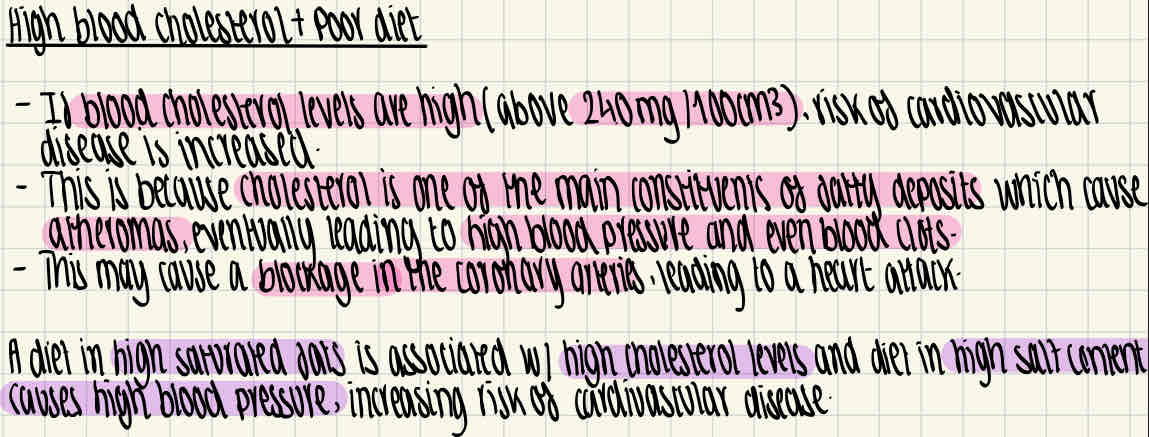 High blood cholesterol + Poor diet
- If blood cholesterol levels are high (above 240mg/100cm3), risk of cardiovascular
disease is increased.
- This is because cholesterol is one of the main constituents of fatty deposits which cause
atheromas, eventually leading to high blood pressure and even blood clots.
- This may cause a blockage in the coronary arteries, leading to a heart attack.
A diet in high saturated fats is associated w/ high cholesterol levels and diet in high salt content
causes high blood pressure, increasing risk of cardivascular disease.